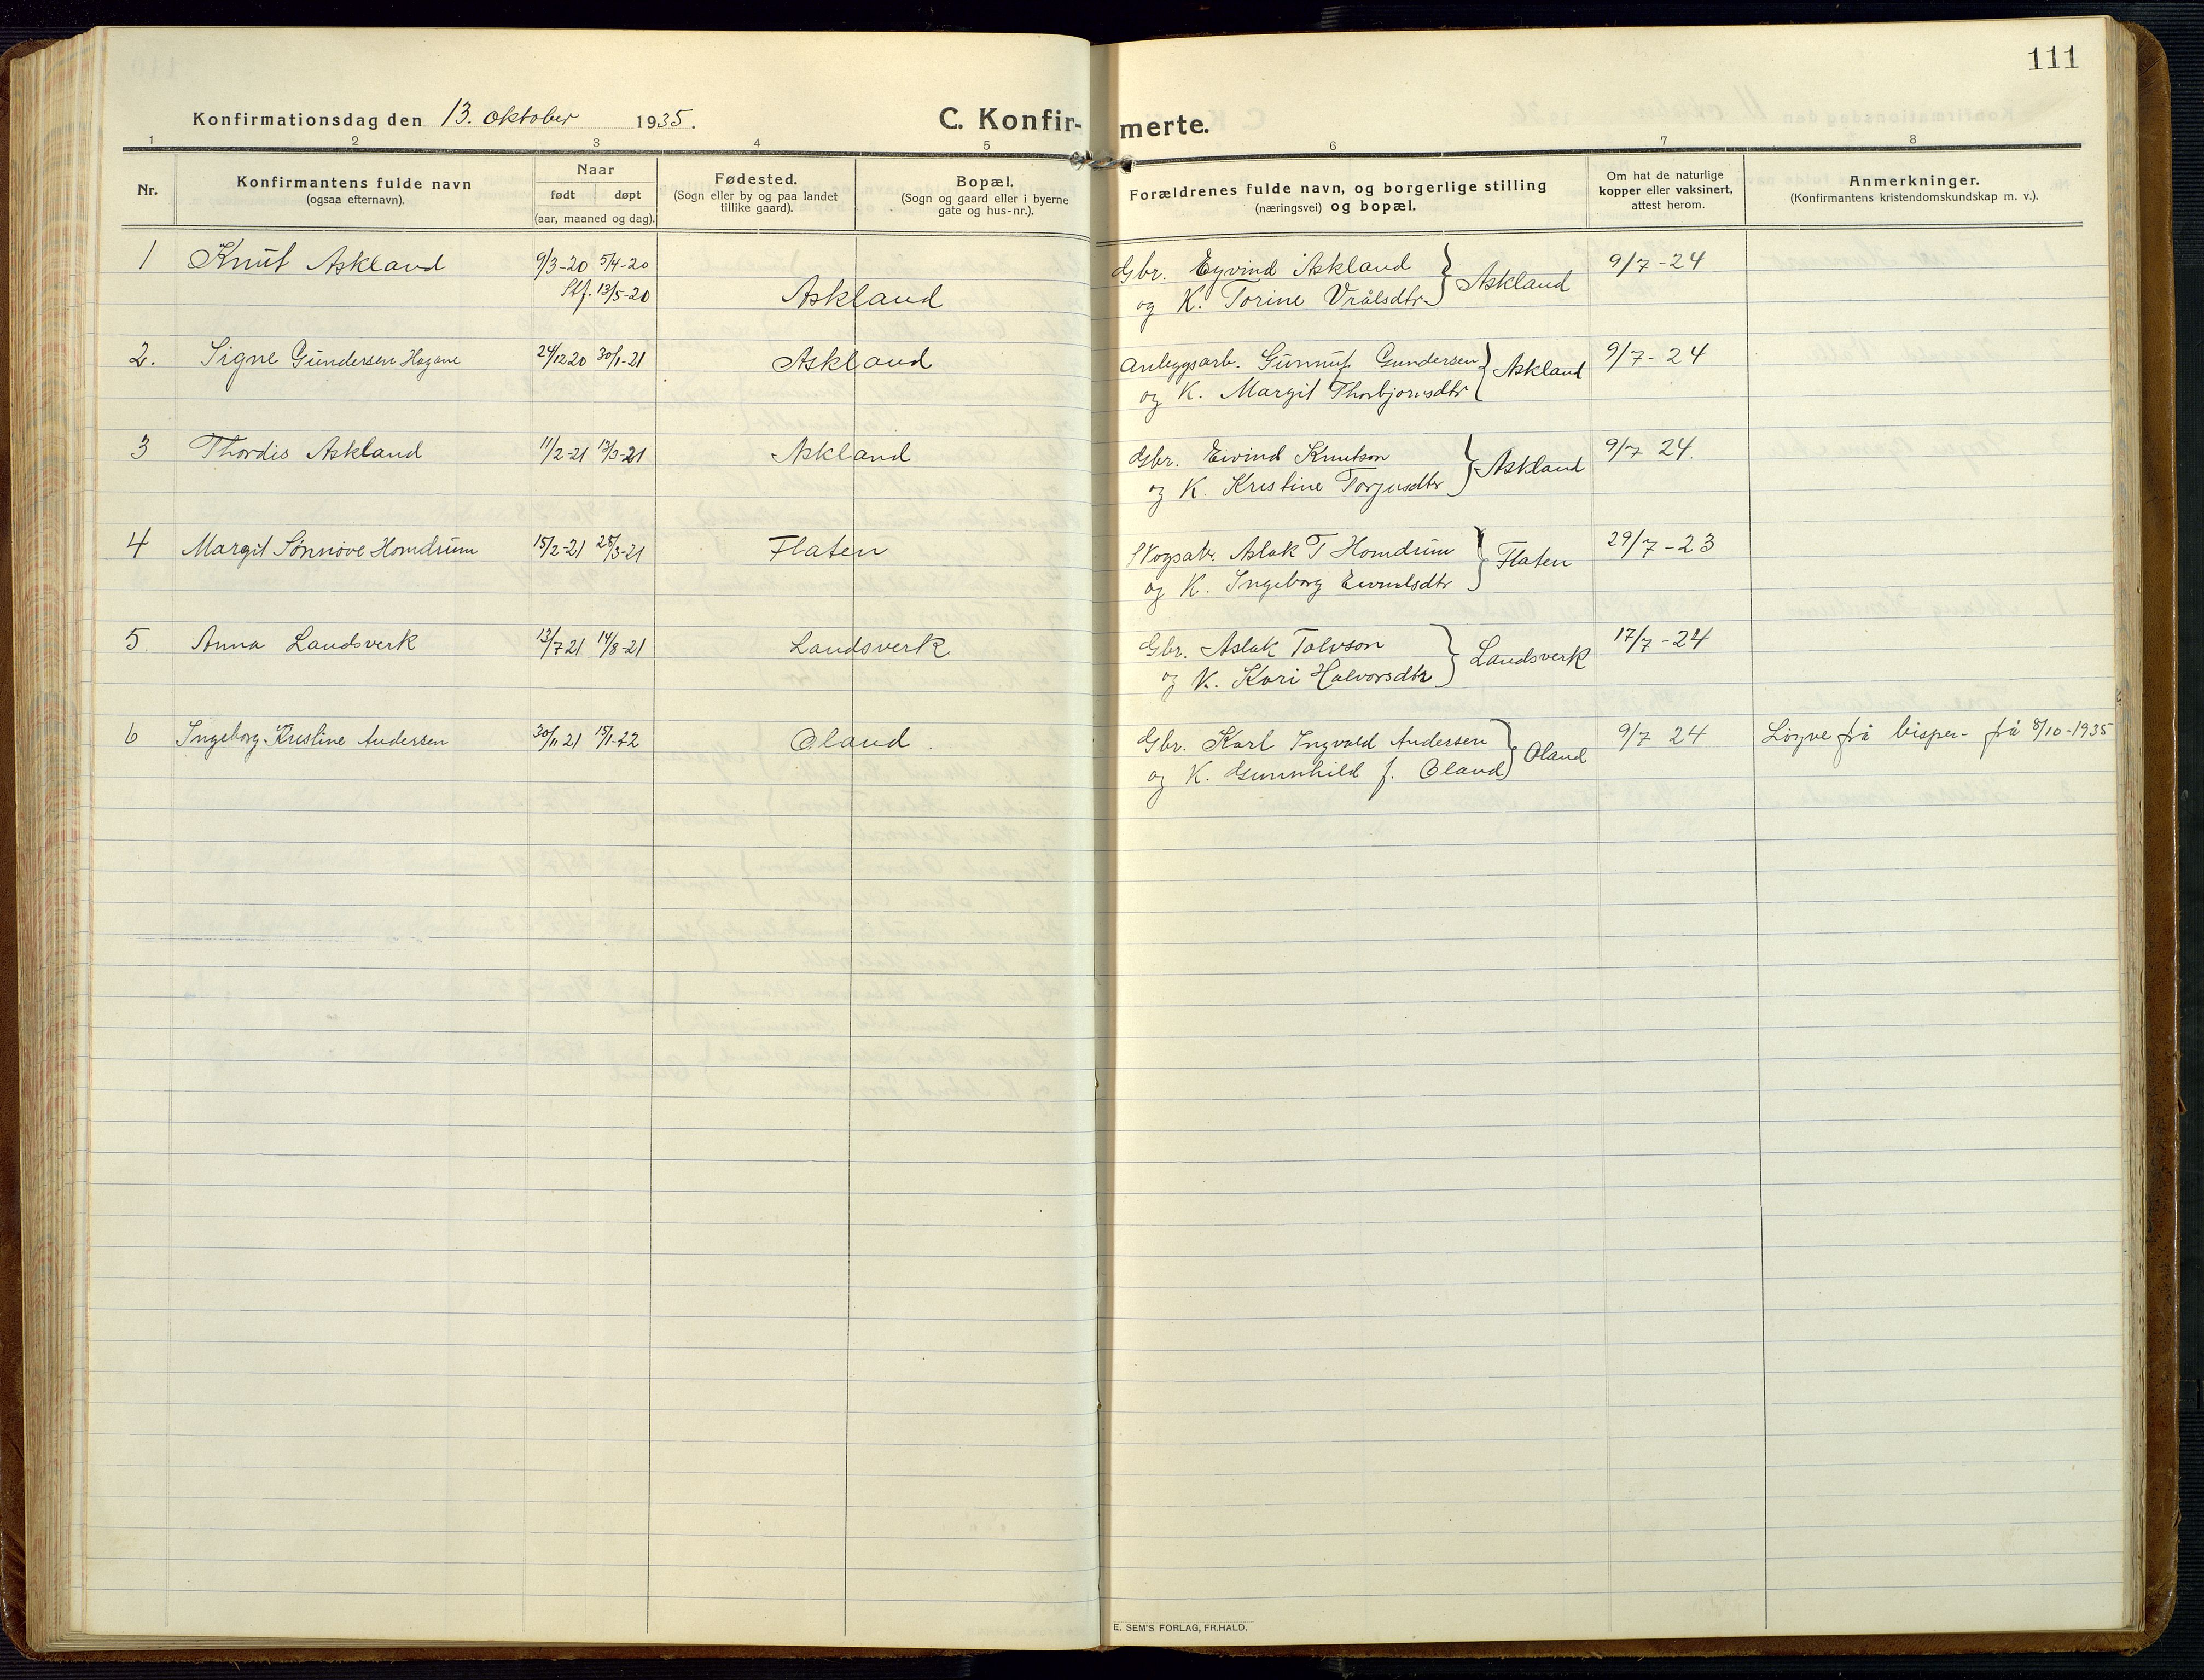 111
Konfirmationsdag den 13. oktober 1935.
C. Konfir-
merte.
1 2 3 4 5 6 7 8
Nr.
Konfirmantens fulde navn
(ogsaa efternavn).
Naar
født døpt
(aar, maaned og dag).
Fødested.
(Sogn eller by og paa landet
tillike gaard).
Bopæl.
(Sogn og gaard eller i byerne
gate og hus-nr.).
Forældrenes fulde navn, og borgerlige stilling
(næringsvei) og bopæl.
Om hat de naturlige
kopper eller vaksinert,
attest herom.
Anmerkninger.
(Konfirmantens kristendomskundskap m. v.).
1 Knut Askland 9/3-20 5/4-20
Stf. 13/5-20 Askland
Gbr. Eyvind Askland
og K. Torine Vrålsdtr. } Askland 9/7-24
2. Signe Gundersen Hagane 24/12 20 30/1-21 Askland
Anleggsarb. Gunnuf Gundersen
og K. Margit Thorbjornsdtr } Askland 9/7-24
3 Thordis Askland 11/2-21 13/3-21 Askland
Gbr. Eivind Knutson
og K. Kristine Torjusdtr } Askland 9/7 24.
4 Margit Sønnøve Homdrum 15/2-21 25/3-21 Flaten
Skogsarb. Aslak T Homdrum
og K. Ingeborg Eivindsdtr } Flaten 29/7-23
5. Anna Landsverk 13/7 21 14/8-21 Landsverk
Gbr. Aslak Tolvson
og K. Kari Halvorsdtr } Landsverk 17/7-24
6 Ingeborg Kristine Andersen 30/11 21 15/1-22 Øland.
Gbr. Karl Ingvald Andersen
og K. Gunnhild f. Øland } Øland 9/7 24 Løyve frå bispen frå 8/10-1935
E. SEM'S FORLAG, FR.HALD.